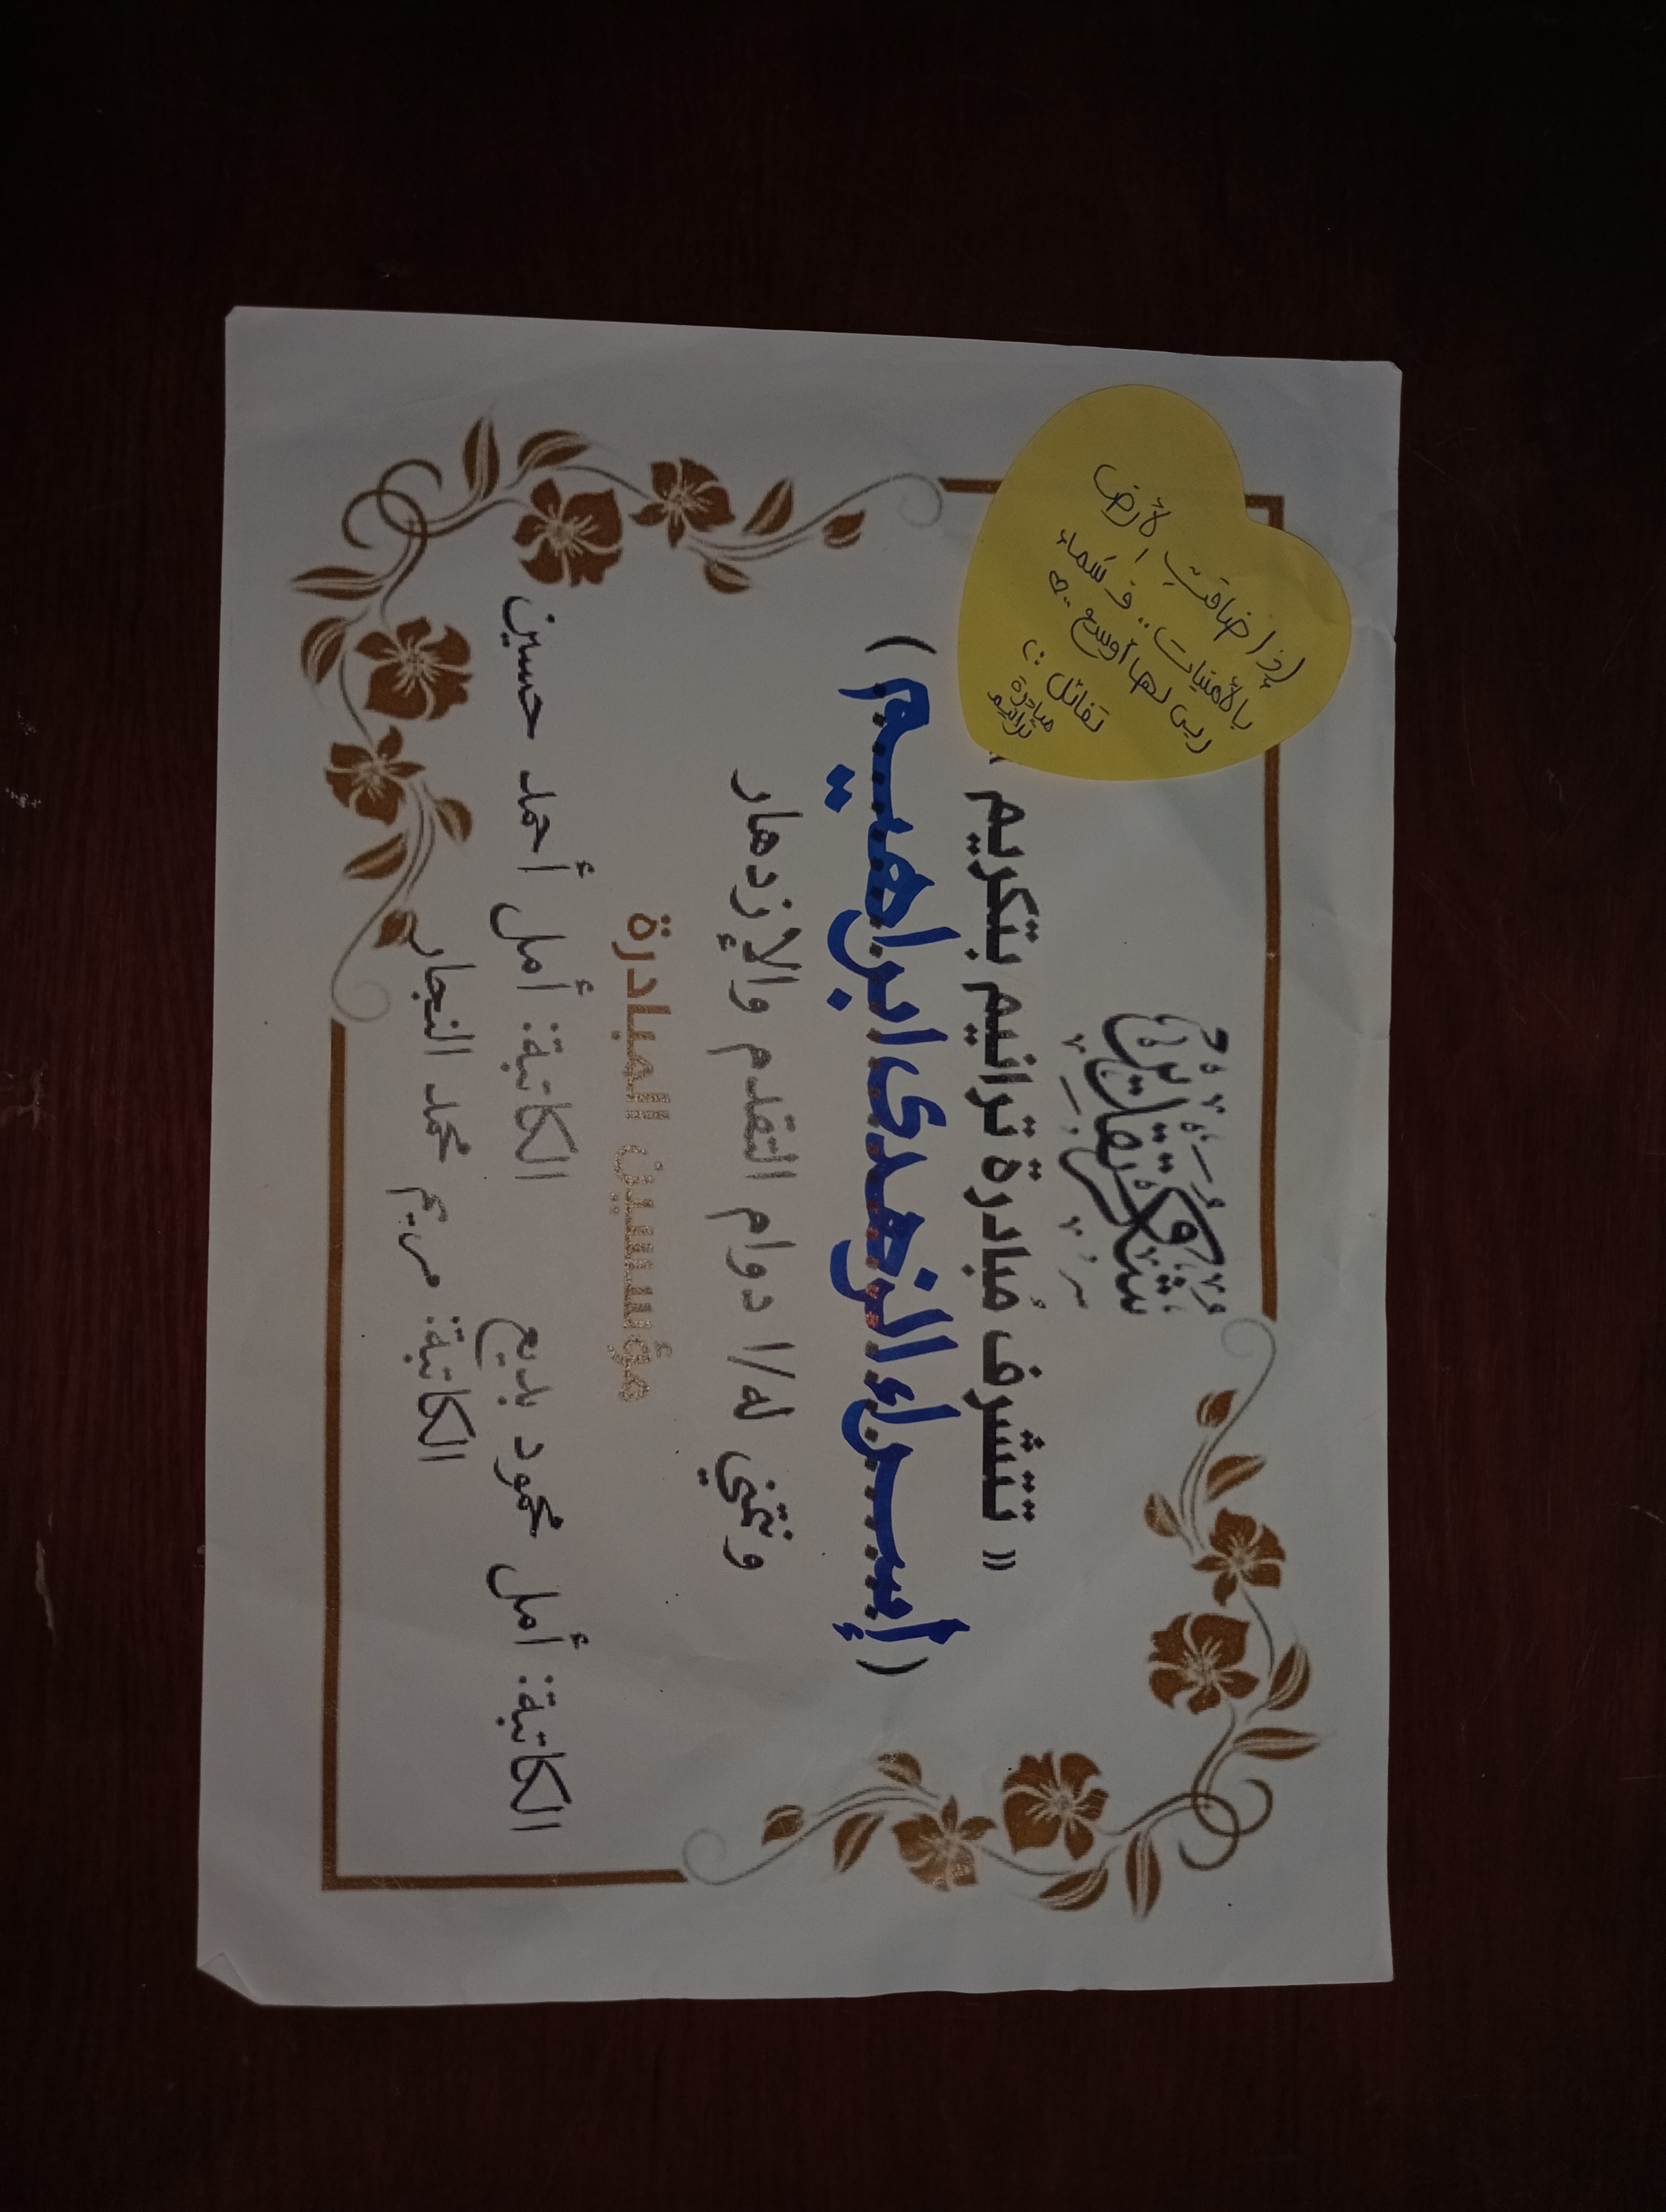 شكر وتقدير
« تتشرف مُبادرة ترانيم بتكريم
(إســراء الزهدى ابراهــيم)
ونتمنى له/ا دوام التقدم والإزدهار
مؤسسين المبادرة
الكاتبة: أمل محمود بديع الكاتبة: أمل أحمد حسين
الكاتبة: مريم محمد النجار
إذا ضاقتِ الأرض
بالأمنيات.. فسَماء
ربي لها أوسع ..
تفائل :)
مبادرة
ترانيم